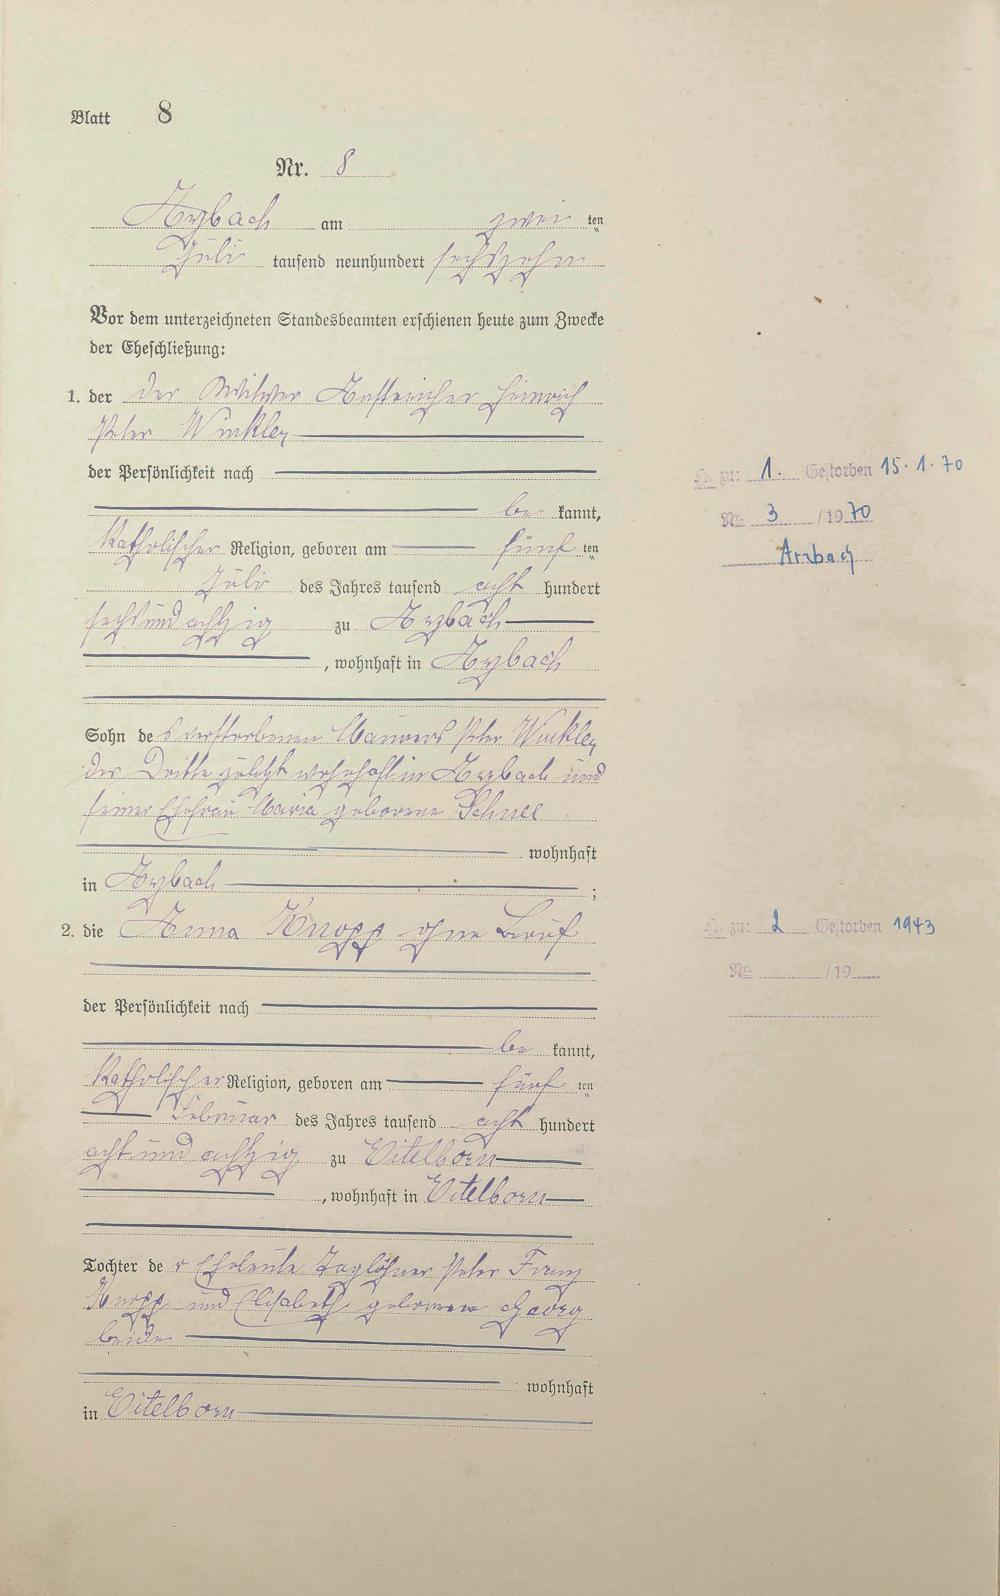 Blatt 8
Nr. 8
Arzbach am zwei ten
Juli tausend neunhundert sechszehn
Vor dem unterzeichneten Standesbeamten erschienen heute zum Zwecke
der Eheschließung:
1. der der Witwer Anstreicher Heinrich
Peter Winkler
der Persönlichkeit nach
be kannt,
Katholischer Religion, geboren am fünf ten
Juli des Jahres tausend acht hundert
sechs und achtzig zu Arzbach
, wohnhaft in Arzbach
Sohn des verstorbenen Maurers Peter Winkler
der Dritte zuletzt wohnhaft in Arzbach und
seiner Ehefrau Maria geborene Schnee
wohnhaft
in Arzbach ;
2. die Anna Knopp ohne Beruf
der Persönlichkeit nach
be kannt,
Katholischer Religion, geboren am fünf ten
Februar des Jahres tausend acht hundert
acht und achtzig zu Eitelborn
, wohnhaft in Eitelborn
Tochter der Eheleute Taglöhner Peter Franz
Knopp und Elisabeth geborene Georg
beide
wohnhaft
in Eitelborn
H. zu: 1. Gestorben 15.1.70
Nr. 3 /1970
Arzbach
H. zu: 2 Gestorben 1943
Nr. /19